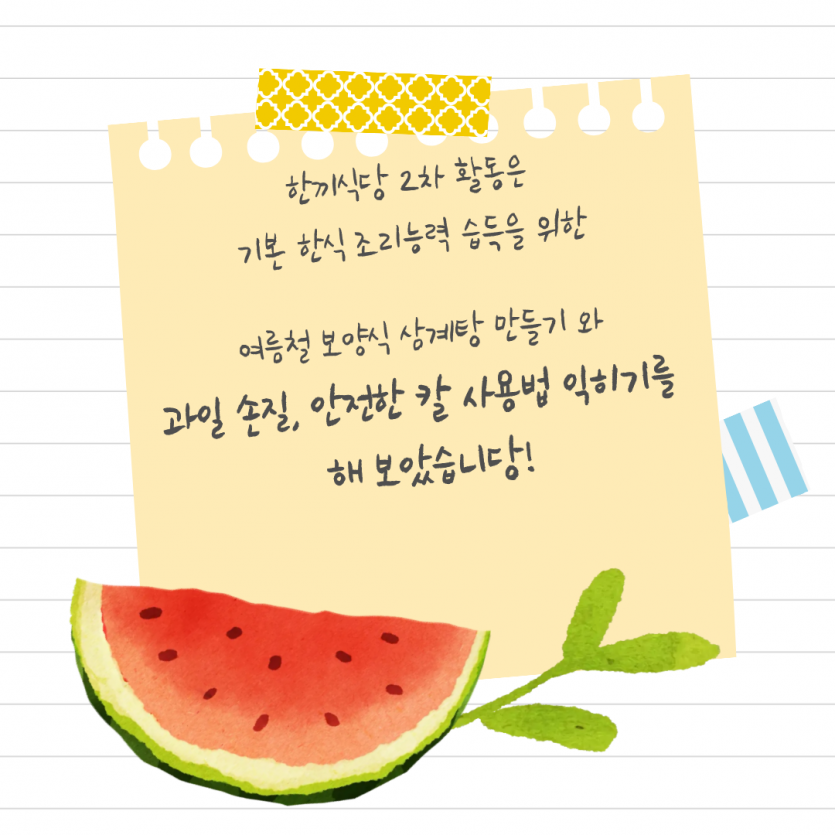 한끼식당 2차 활동은
기본 한식 조리능력 습득을 위한
여름철 보양식 삼계탕 만들기 와
과일 손질, 안전한 칼 사용법 익히기를
해 보았습니당!